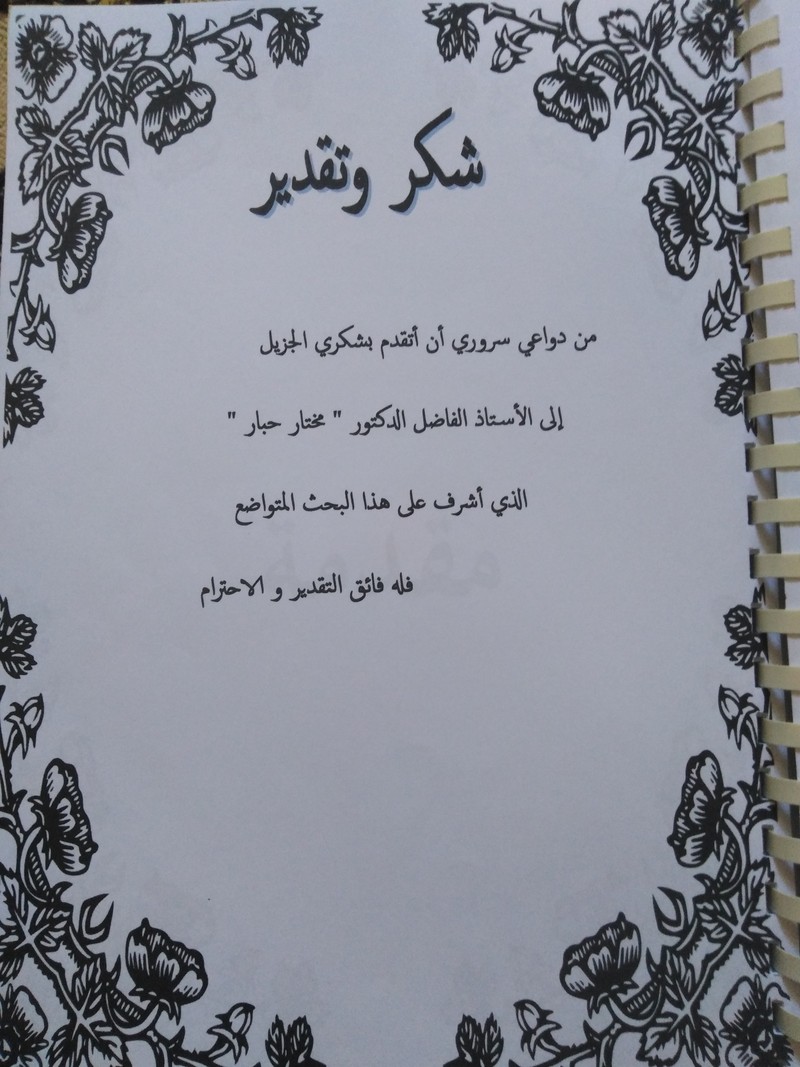 شكر وتقدير
من دواعي سروري أن أتقدم بشكري الجزيل
إلى الأستاذ الفاضل الدكتور " مختار حبار "
الذي أشرف على هذا البحث المتواضع
فله فائق التقدير و الاحترام